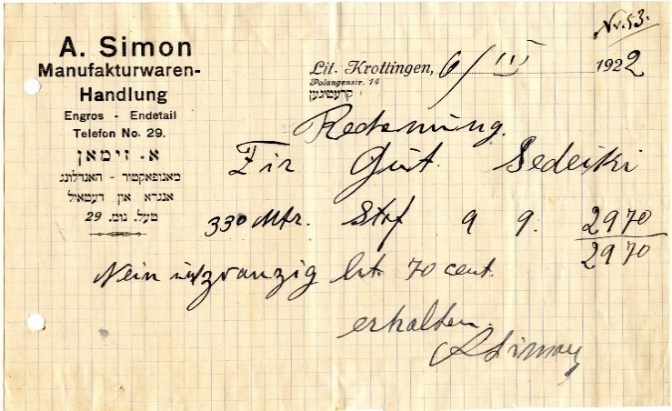 Nr. 53.
A. Simon
Manufakturwaren-
Handlung
Engros - Endetail
Telefon No. 29.
א. זימאן
מאנופאקטור - האנדלונג
אנגרא און דעטאיל
טעל. נומ. 29
Lit. Krottingen, 6/III 1922
Polangenstr. 14
קרעטינגען
Rechnung.
Für Gut. Sedeiki
330 Mtr. Stof 9 9. 2970
2970
Nein zvanzig lit. 70 cent.
erhalten.
ASimon